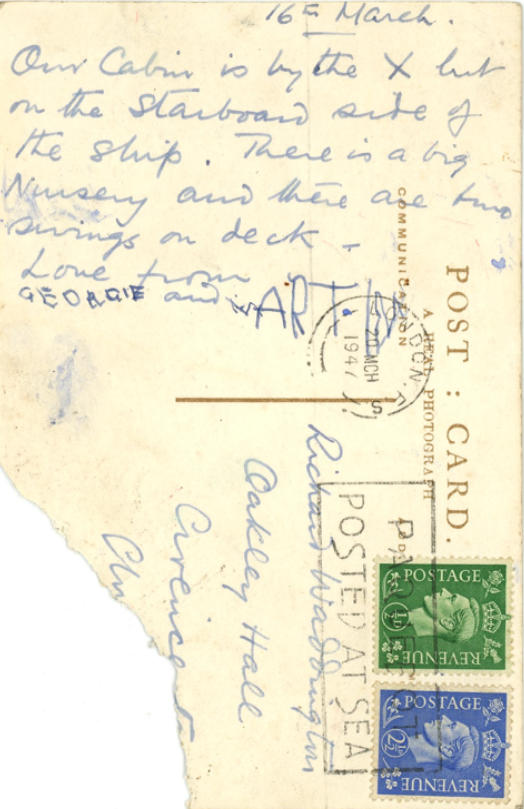 16th March.
Our Cabin is by the X but
on the Starboard side of
the ship. There is a big
Nursery and there are two
swings on deck -
Love from
GEORGIE and
POST : CARD.
A REAL PHOTOGRAPH
COMMUNICATION
LONDON
20 MCH
1947
S
PAQUEBOT
POSTED AT SEA
Richard Waddington
Oakley Hall
Cirencester
POSTAGE
½D
REVENUE
POSTAGE
2½D
REVENUE